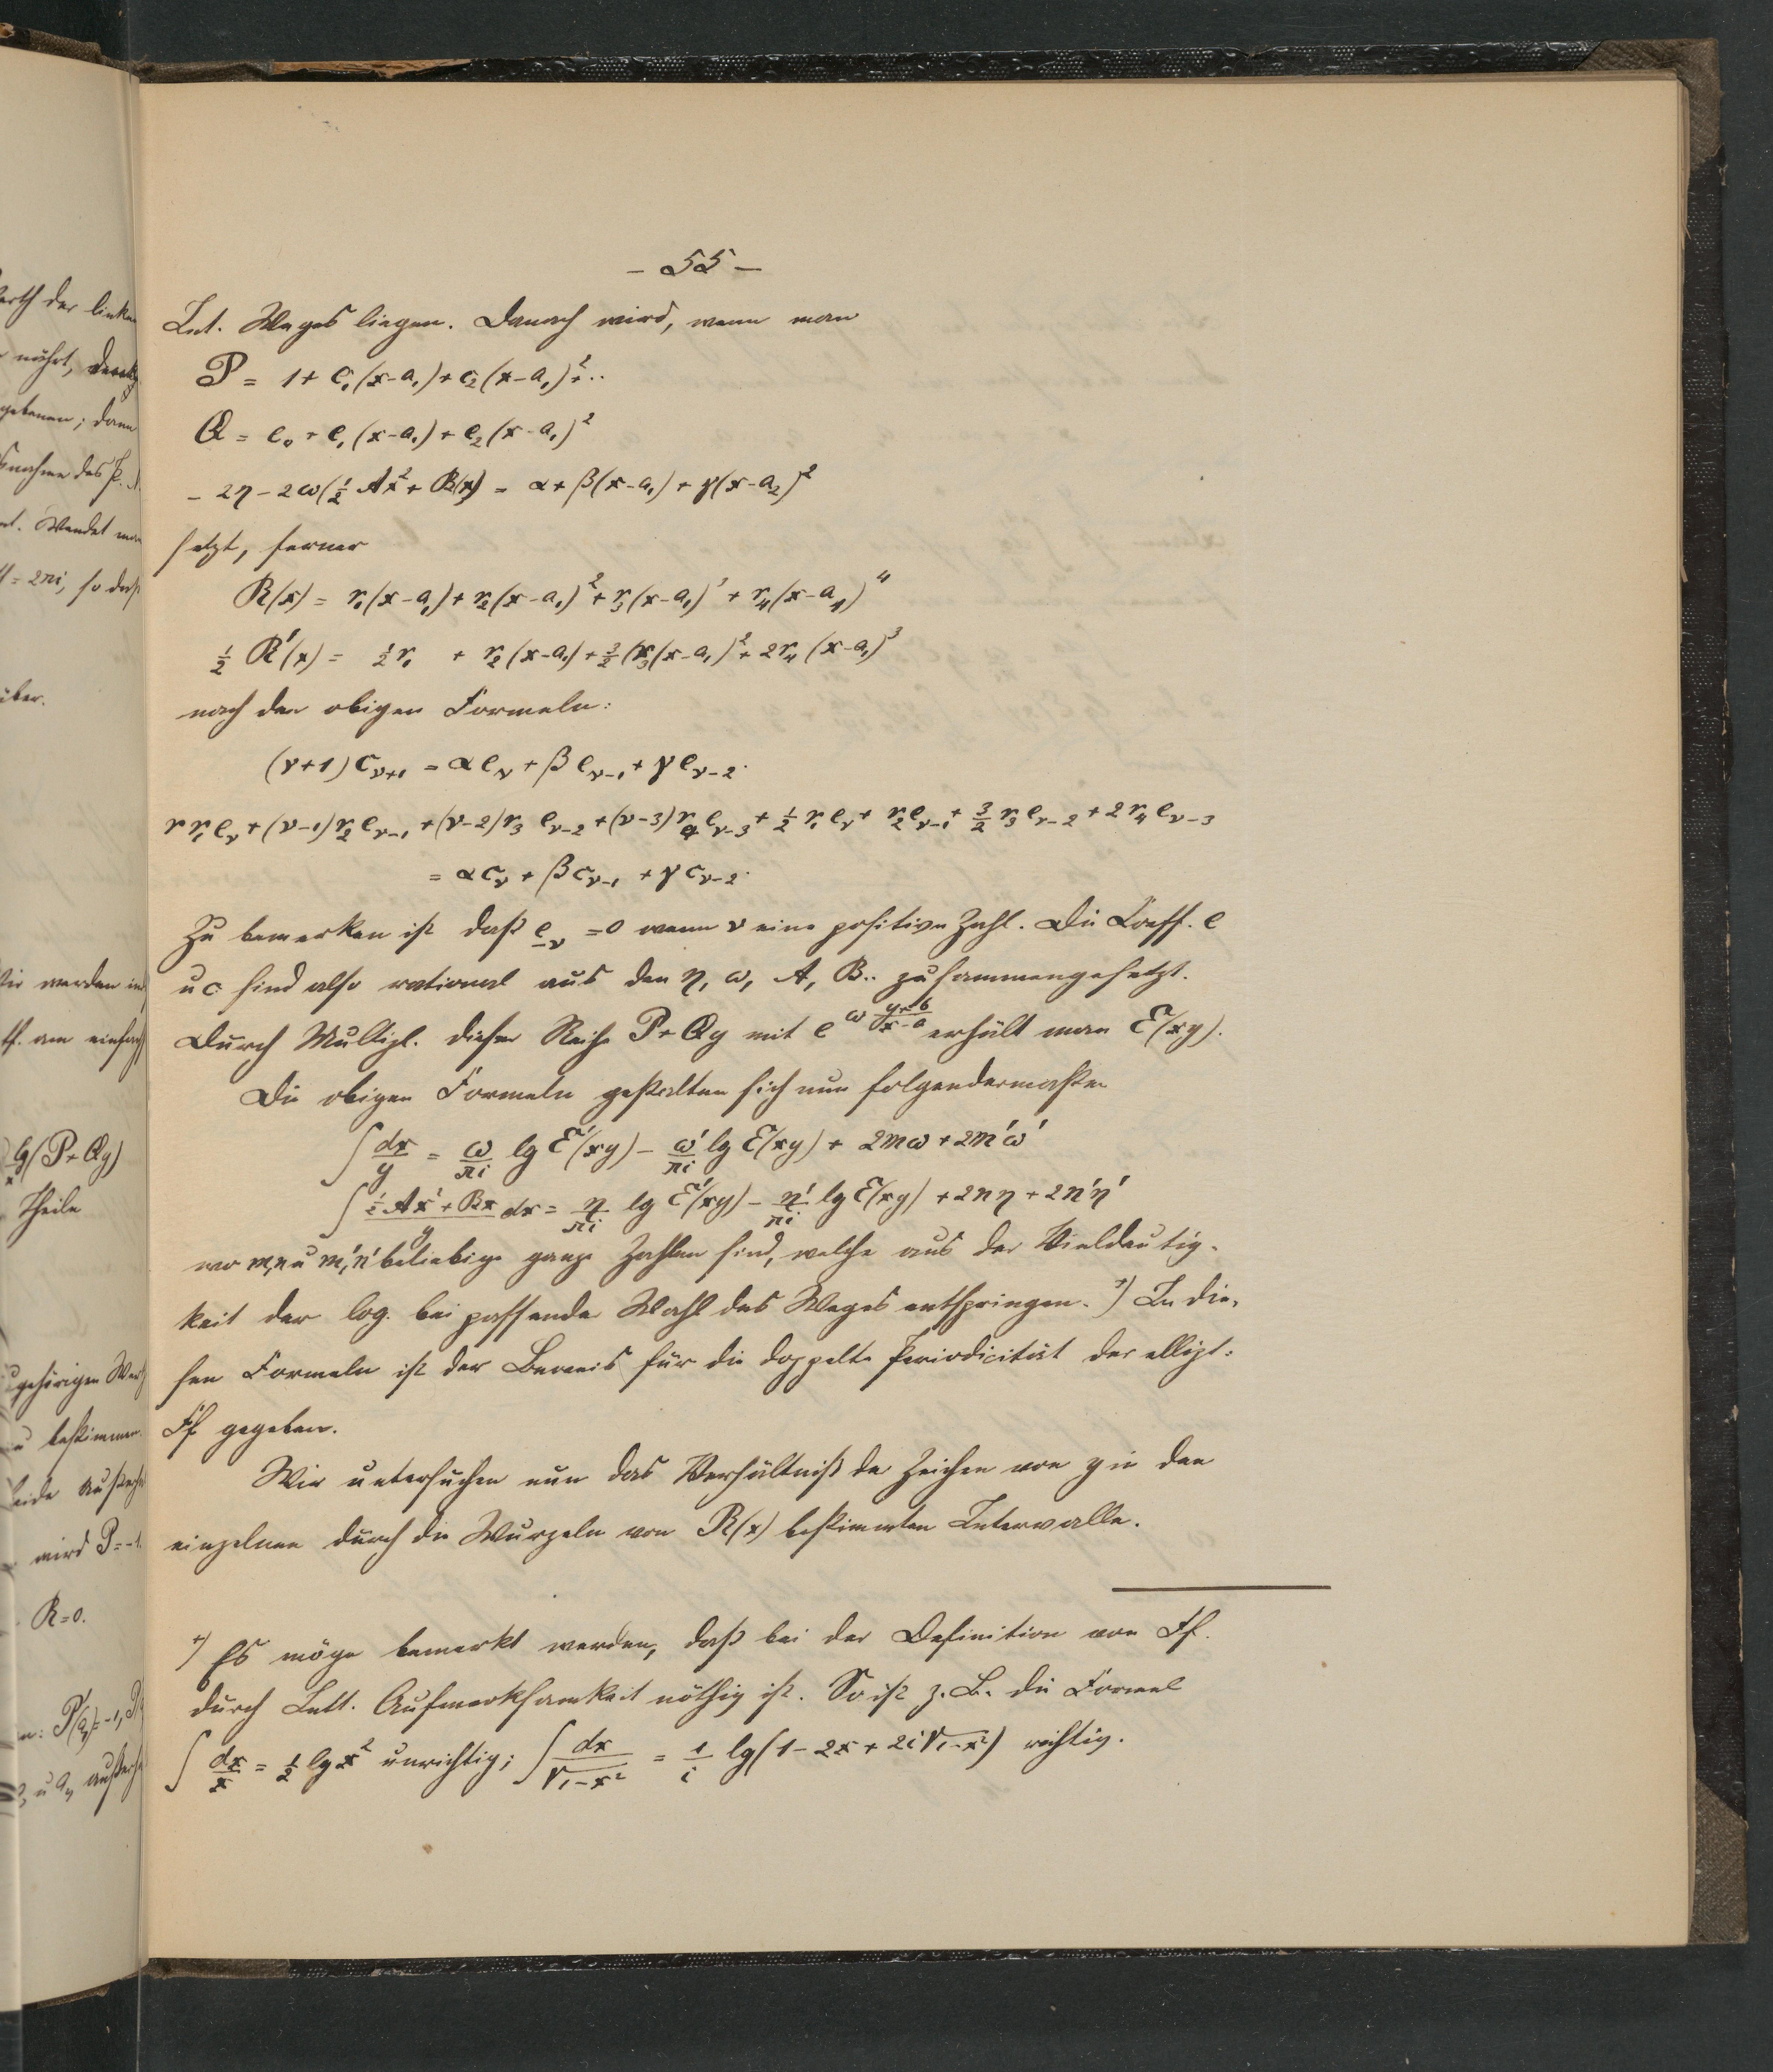 - 55 -
Int. Weges liegen. Danach wird, wenn man
P = 1 + c₁(x-a₁) + c₂(x-a₁)² + ..
Q = e₀ + e₁(x-a₁) + e₂(x-a₁)²
- 2η - 2ω(½ Ax² + B(x)) = α + β(x-a₁) + γ(x-a₂)²
setzt, ferner
R(x) = r₁(x-a₁) + r₂(x-a₁)² + r₃(x-a₁)³ + r₄(x-a₁)⁴
½ R'(x) = ½ r₁ + r₂(x-a₁) + 3/2 (r₃(x-a₁)² + 2r₄(x-a₁)³
nach den obigen Formeln:
(ν+1) c_{ν+1} = α e_ν + β e_{ν-1} + γ e_{ν-2}.
ν r₁ e_ν + (ν-1) r₂ e_{ν-1} + (ν-2) r₃ e_{ν-2} + (ν-3) r₄ e_{ν-3} + ½ r₁ e_ν + r₂ e_{ν-1} + 3/2 r₃ e_{ν-2} + 2 r₄ e_{ν-3}
= α c_ν + β c_{ν-1} + γ c_{ν-2}.
Zu bemerken ist daß e_{-ν} = 0 wenn ν eine positive Zahl. Die Coeff. e
u c sind also rational aus den η, ω, A, B.. zusammengesetzt.
Durch Multipl. dieser Reihe P + Qy mit e^{ω (y+b)/(x-a)} erhält man E(xy).
Die obigen Formeln gestalten sich nun folgendermaßen
∫ dx/y = ω/πi lg E'(xy) - ω'/πi lg E(xy) + 2mω + 2m'ω'
∫ (½ Ax² + Bx)/y dx = η/πi lg E'(xy) - η'/πi lg E(xy) + 2nη + 2n'η'
wo m, n u m', n' beliebige ganze Zahlen sind, welche aus der Vieldeutig-
keit der log. bei passender Wahl des Weges entspringen. *) In die-
sen Formeln ist der Beweis für die doppelte Periodicität der ellipt:
Ff gegeben.
Wir untersuchen nun das Verhältniß der Zeichen von y in den
einzelnen durch die Wurzeln von R(x) bestimmten Intervalle.
*) Es möge bemerkt werden, daß bei der Definition von Ff.
durch Intt. Aufmerksamkeit nöthig ist. So ist z. B. die Formel
∫ dx/x = ½ lg x² unrichtig; ∫ dx/√(1-x²) = 1/i lg(1 - 2x + 2i√(1-x²)) richtig.